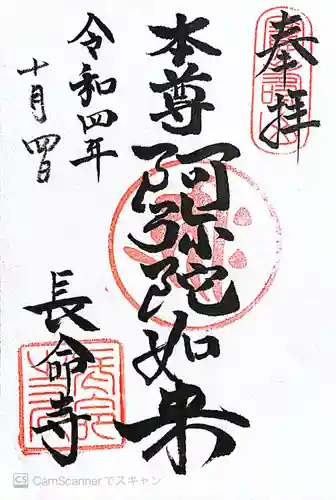 奉拝
本尊阿弥陀如来
令和四年
十月四日
長命寺
CS CamScannerでスキャン